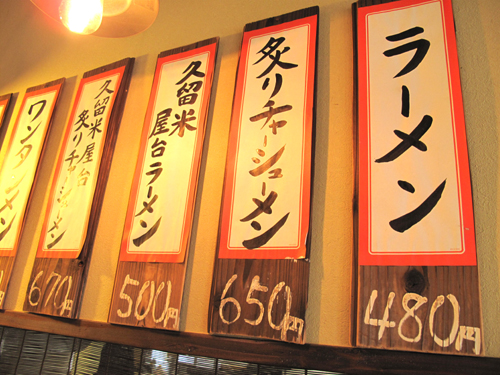 ラーメン
480円
炙りチャーシューメン
650円
久留米
屋台ラーメン
500円
久留米屋台
炙りチャーシューメン
670円
ワンタンメン